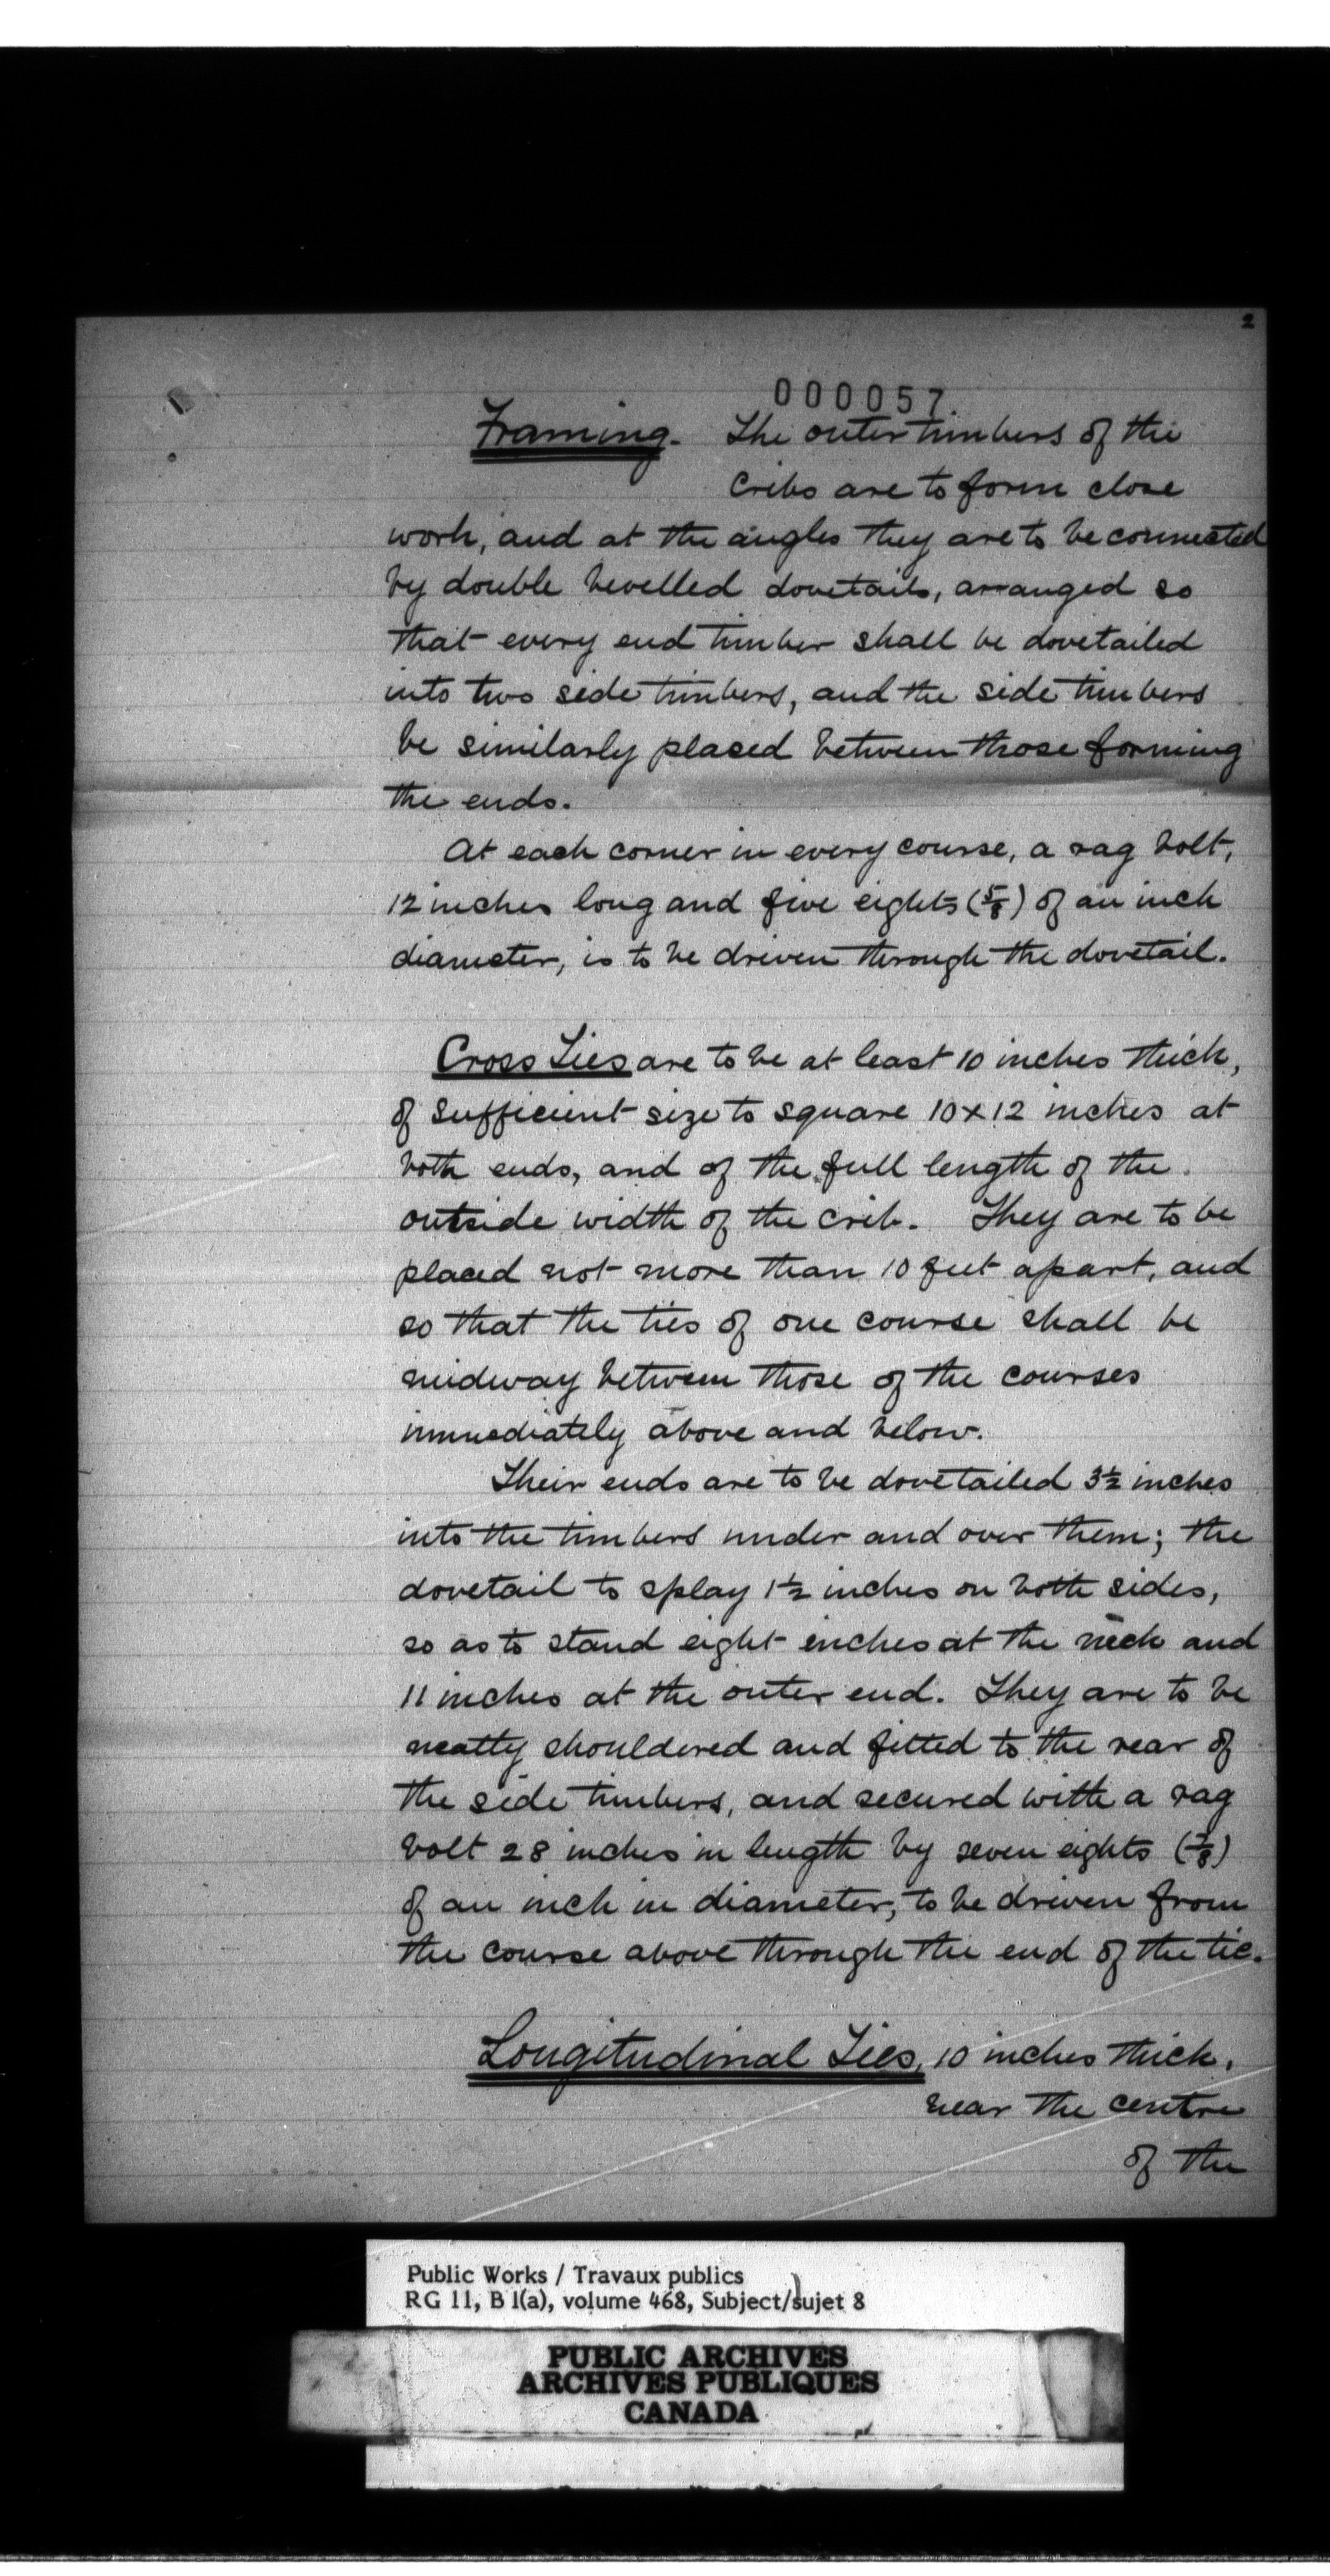 2
000057
Framing. The outer timbers of the
Cribs are to form close
work, and at the angles they are to be connected
by double bevelled dovetails, arranged so
that every end timber shall be dovetailed
into two side timbers, and the side timbers
be similarly placed between those forming
the ends.
At each corner in every course, a rag bolt,
12 inches long and five eights (5/8) of an inch
diameter, is to be driven through the dovetail.
Cross Ties are to be at least 10 inches thick,
of sufficient size to square 10 x 12 inches at
both ends, and of the full length of the
outside width of the crib. They are to be
placed not more than 10 feet apart, and
so that the ties of one course shall be
midway between those of the courses
immediately above and below.
Their ends are to be dovetailed 3½ inches
into the timbers under and over them; the
dovetail to splay 1½ inches on both sides,
so as to stand eight inches at the neck and
11 inches at the outer end. They are to be
neatly shouldered and fitted to the rear of
the side timbers, and secured with a rag
bolt 28 inches in length by seven eights (7/8)
of an inch in diameter, to be driven from
the course above through the end of the tie.
Longitudinal Ties, 10 inches thick,
near the centre
of the
Public Works / Travaux publics
RG 11, B 1(a), volume 468, Subject/sujet 8
PUBLIC ARCHIVES
ARCHIVES PUBLIQUES
CANADA